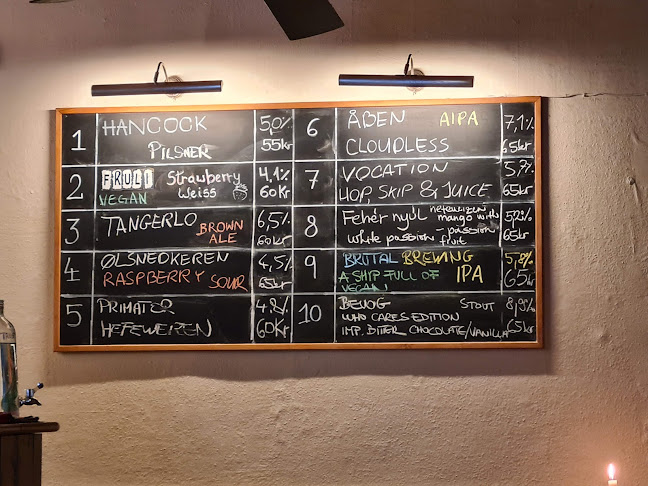 1 HANCOCK 5,0%
PILSNER 55kr
2 FRULI Strawberry 4,1%
VEGAN Weiss 60Kr
3 TANGERLO 6,5%
BROWN ALE 60kr
4 ØLSNEDKEREN 4,5%
RASPBERRY SOUR 65kr
5 PRIMATOR 4.8%
HEFEWEIZEN 60Kr
6 ÅBEN AIPA 7,1%
CLOUDLESS 65kr
7 VOCATION
HOP, SKIP & JUICE 65kr
8 Fehér nyúl mango with
white passion - passion fruit 65kr
9 BRUTAL BREWING
A SHIP FULL OF IPA 65
VEGAN kr
10 BEVOG STOUT
WHO CARES EDITION
IMP. BITTER CHOCOLATE/VANILLA 65kr